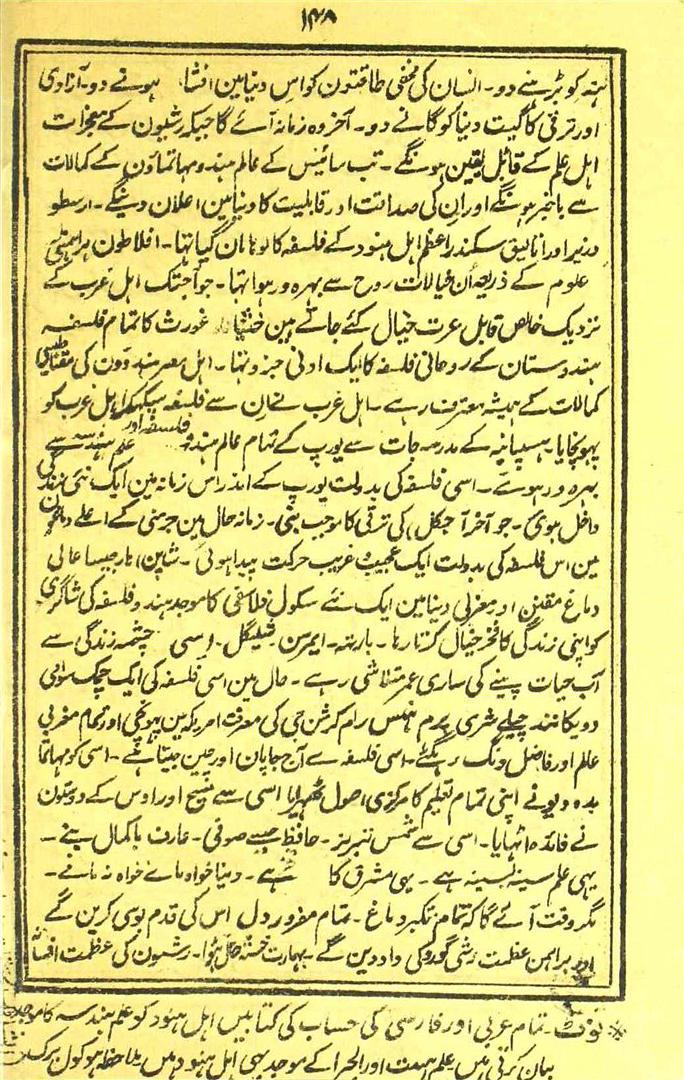 ۱۴۸
ہند کو بڑہنے دو۔ انسان کی مخفی طاقتون کو اس دنیا مین افشا ہونے دو۔ آزادی
اور ترقی کا گیت دنیا کو گانے دو۔ آخر وہ زمانہ آئے گا جبکہ رشیون کے معجزات
اہل علم کے قابل یقین ہونگے۔ تب سائینس کے عالم ہندو مہاتماؤن کے کمالات
سے باخبر ہونگے اور ان کی صداقت اور قابلیت کا دنیا مین اعلان دینگے۔ ارسطو
وزیر اور اتالیق سکندر اعظم اہل ہنود کے فلسفہ کا لوہا مان گیا تہا۔ افلاطون براہمنی
علوم کے ذریعہ ان خیالات روح سے بہرہ ور ہوا تہا۔ جو آجتک اہل غرب کے
نزدیک خاص قابل عزت خیال کئے جاتے ہین فیثا غورث کا تمام فلسفہ
ہندوستان کے روحانی فلسفہ کا ایک ادنی جزو تہا۔ اہل مصر ہندوون کی مقناطیسی
کمالات کے ہمیشہ معترف رہے۔ اہل عرب نے ان سے فلسفہ سیکہکر اہل غرب کو
پہونچایا۔ ہسپانیہ کے مدرسہ جات سے یورپ کے تمام عالم ہندو فلسفہ اور علم ہندسہ سے
بہرہ ور ہوئے۔ اسی فلسفہ کی بدولت یورپ کے اندر اس زمانہ مین ایک نئی زندگی
داخل ہوئی۔ جو آخر آجکل کی ترقی کا موجب بنی۔ زمانہ حال مین جرمنی کے اعلے دماغون
مین اس فلسفہ کی بدولت ایک عجیب و غریب حرکت پیدا ہوئی۔ شاپن ہار جیسا عالی
دماغ مقنن اور مغربی دنیا مین ایک نئے سکول فلاسفی کا موجد ہندو فلسفہ کی شاگردی
کو اپنی زندگی کا فخر خیال کرتا رہا۔ بارتہ۔ ایمرسن۔ شلیگل۔ اسی چشمہ زندگی سے
آب حیات پینے کی ساری عمر متلاشی رہے۔ حال مین اسی فلسفہ کی ایک چمک سوامی
دویکانند چیلے شری پرم ہنس رام کرشن جی کی معرفت امریکہ مین پہونچی اور تمام مغربی
عالم اور فاضل دنگ رہ گئے۔ اسی فلسفہ سے آج جاپان اور چین جیتا ہے۔ اسی کو مہاتما
بدہ دیو نے اپنی تمام تعلیم کا مرکزی اصول ٹہیرایا اسی سے مسیح اور اوس کے دوستون
نے فائدہ اٹہایا۔ اسی سے شمس تبریز۔ حافظ جیسے صوفی۔ عارف باکمال بنے۔
یہی علم سینہ بسینہ ہے۔ یہی مشرق کا ہے۔ دنیا خواہ مانے خواہ نہ مانے۔
مگر وقت آئے گا کہ تمام متکبر دماغ۔ تمام مغرور دل اس کی قدم بوسی کرین گے
اور براہمن عظمت رشی گورو کی داد دین گے۔ بہارت خستہ حال ہوا۔ رشیون کی عظمت افسانہ
* نوٹ۔ تمام عربی اور فارسی کی حساب کی کتابیں اہل ہنود کو علم ہندسہ کا موجد
بیان کرتی ہیں علم ہیئت اور الجبرا کے موجد بہی اہل ہنود ہیں ملاحظہ ہو کول برک